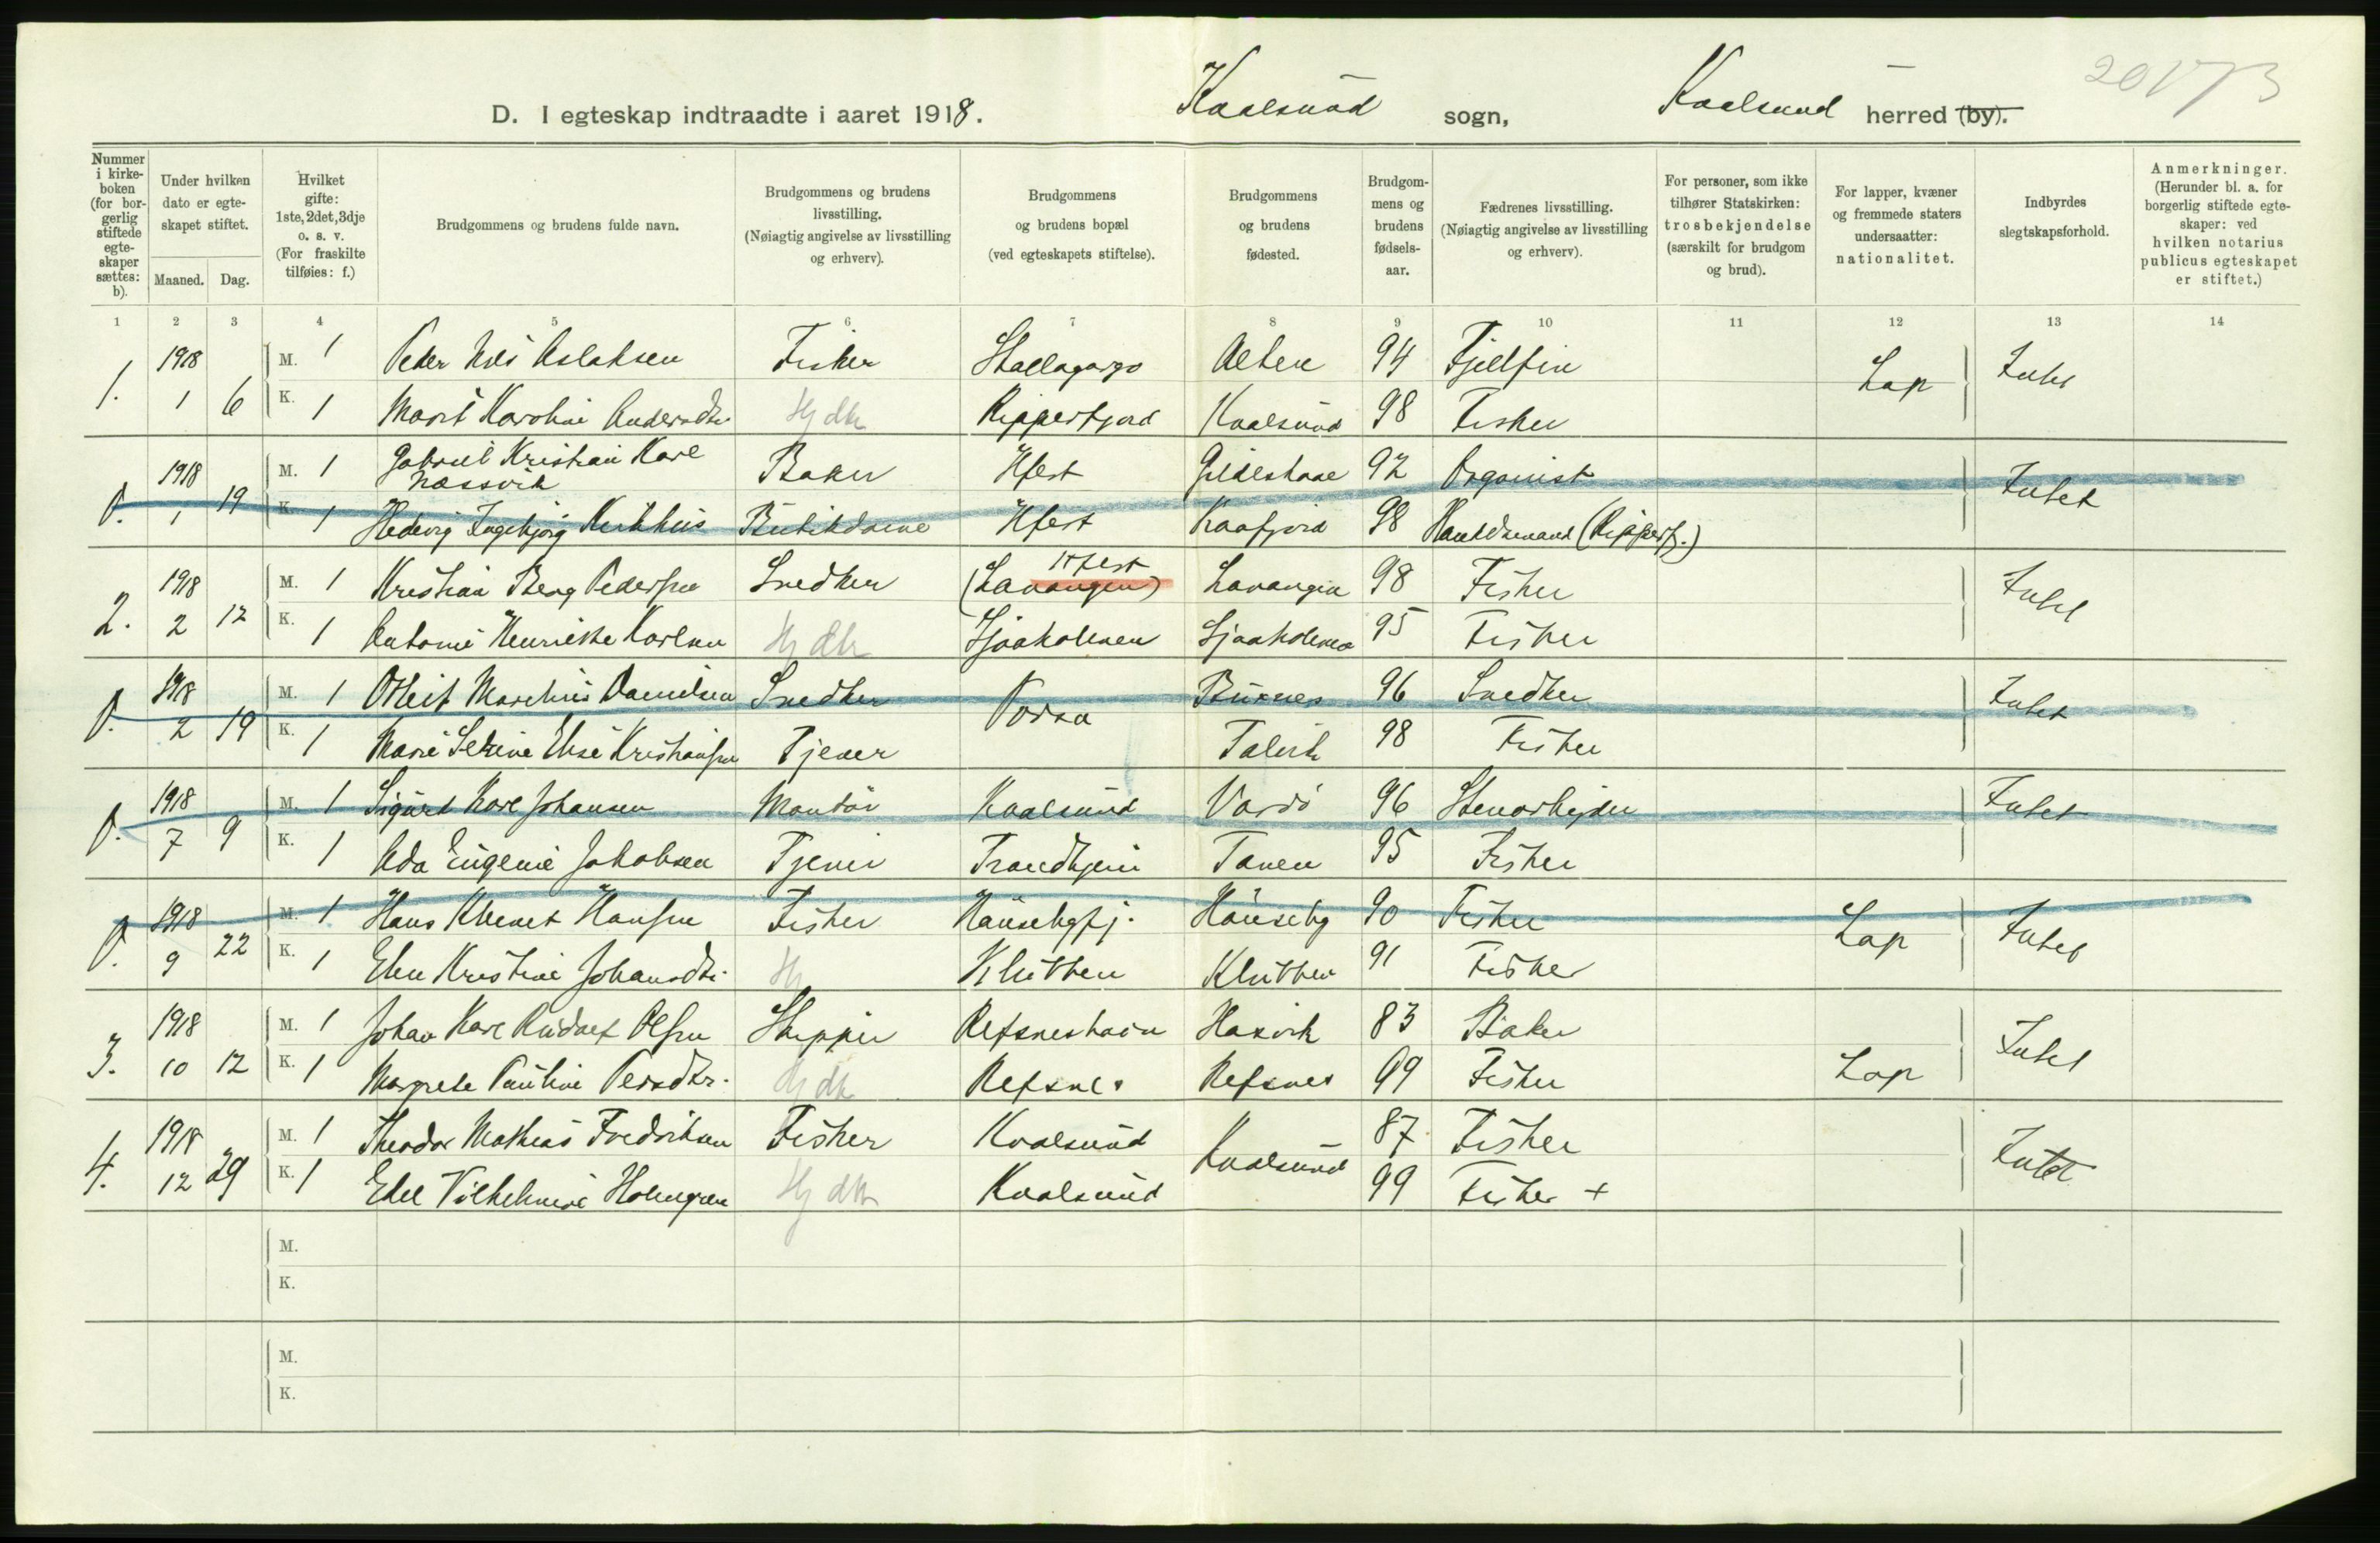 20173
D. I egteskap indtraadte i aaret 1918. Kvalsund sogn, Kvalsund herred (by).
Nummer i kirkeboken (for borgerlig stiftede egteskaper sættes: b). Under hvilken dato er egteskapet stiftet. Maaned. Dag. Hvilket gifte: 1ste, 2det, 3dje o. s. v. (For fraskilte tilføies: f.) Brudgommens og brudens fulde navn. Brudgommens og brudens livsstilling. (Nøiagtig angivelse av livsstilling og erhverv). Brudgommens og brudens bopæl (ved egteskapets stiftelse). Brudgommens og brudens fødested. Brudgommens og brudens fødselsaar. Fædrenes livsstilling. (Nøiagtig angivelse av livsstilling og erhverv). For personer, som ikke tilhører Statskirken: trosbekjendelse (særskilt for brudgom og brud). For lapper, kvæner og fremmede staters undersaatter: nationalitet. Indbyrdes slegtskapsforhold. Anmerkninger. (Herunder bl. a. for borgerlig stiftede egteskaper: ved hvilken notarius publicus egteskapet er stiftet.)
1 2 3 4 5 6 7 8 9 10 11 12 13 14
1. 1918 M. 1 Peder Nils Aslaksen Fisker Skallagargo Alten 94 Fjellfin Lap Intet
1 6 K. 1 Marit Karoline Andersdtr. Hj dtr Repparfjord Kvalsund 98 Fisker
0. 1918 M. 1 Gabriel Kristian Karl Næssvik Baker Hfest Gildeskaal 92 Organist Intet
1 19 K. 1 Hedvig Ingebjørg Kirkhus Butikdame Hfest Kaafjord 98 Handelsmand (Repparfj.)
2. 1918 M. 1 Kristian Berg Pedersen Snedker (Lavangen) Hfest Lavangen 98 Fisker Intet
2 12 K. 1 Antonie Henrikke Karlsen Hj dtr Sjaaholmen Sjaaholmen 95 Fisker
0. 1918 M. 1 Otleif Marelius Danielsen Snedker Porsa Buxnes 96 Snedker Intet
2 19 K. 1 Marie Selrine Elise Kristiansen Tjener Talvik 98 Fisker
0. 1918 M. 1 Sigurd Karl Johansen Montør Kvalsund Vardö 96 Stenarbeider Intet
7 9 K. 1 Ada Eugenie Jakobsen Tjener Trondhjem Tanen 95 Fisker
0. 1918 M. 1 Hans Klemet Hansen Fisker Hönsebyfj. Hönseby 90 Fisker Lap Intet
9 22 K. 1 Elen Kristine Johansdtr. Hj Klubben Klubben 91 Fisker
3. 1918 M. 1 Johan Karl Rudolf Olsen Skipper Refsneshavn Hasvik 83 Baker Intet
10 12 K. 1 Margrete Pauline Persdtr. Hj dtr Refsnes Refsnes 99 Fisker Lap
4. 1918 M. 1 Theodor Mathias Fredriksen Fisker Kvalsund Kvalsund 87 Fisker Intet
12 29 K. 1 Edel Vilhelmine Holmgren Hj dtr Kvalsund 99 Fisker +
M.
K.
M.
K.